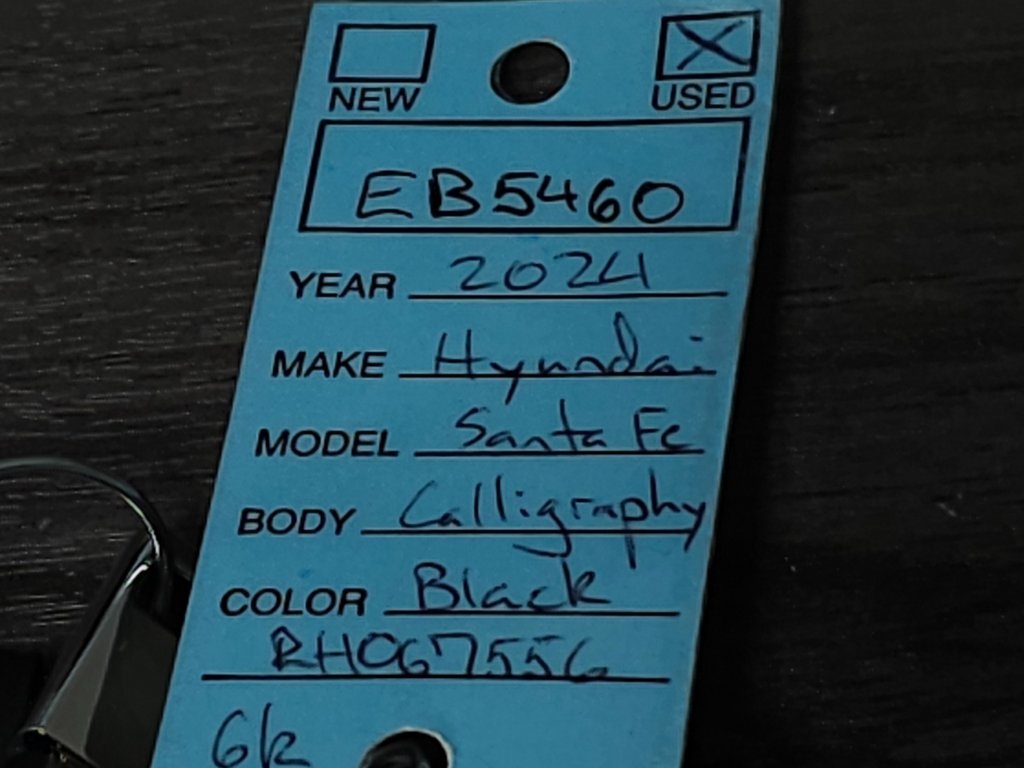 NEW USED
EB5460
YEAR 2024
MAKE Hyundai
MODEL Santa Fe
BODY Calligraphy
COLOR Black
RH067556
6k